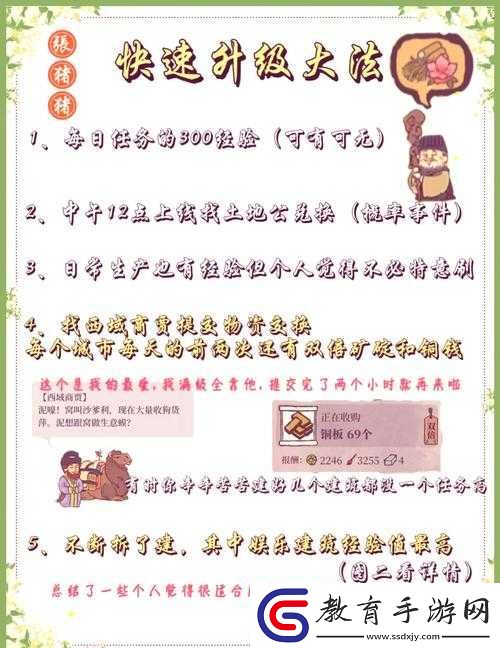 張豬豬
快速升级大法
1、每日任务的300经验（可有可无）
2、中午12点上线找土地公兑换（概率事件）
3、日常生产也有经验但个人觉得不必特意刷
4、找西域商贾提交物资交换
每个城市每天的前两次还有双倍矿碇和铜钱
这个是我的最爱，我满级全靠他，提交完了两个小时就再来啦
【西域商贾】
泥嚎！窝叫沙爹利，现在大量收购货
萍。泥想跟窝做生意嫫？
正在收购
铜板 69个
双倍
报酬： 2246 3255 4
有时你辛辛苦苦建好几个建筑都没一个任务高
5、不断拆了建，其中娱乐建筑经验值最高
（图二看详情）
总结了一些个人觉得很适合
教育手游网
www.ssdxjy.com